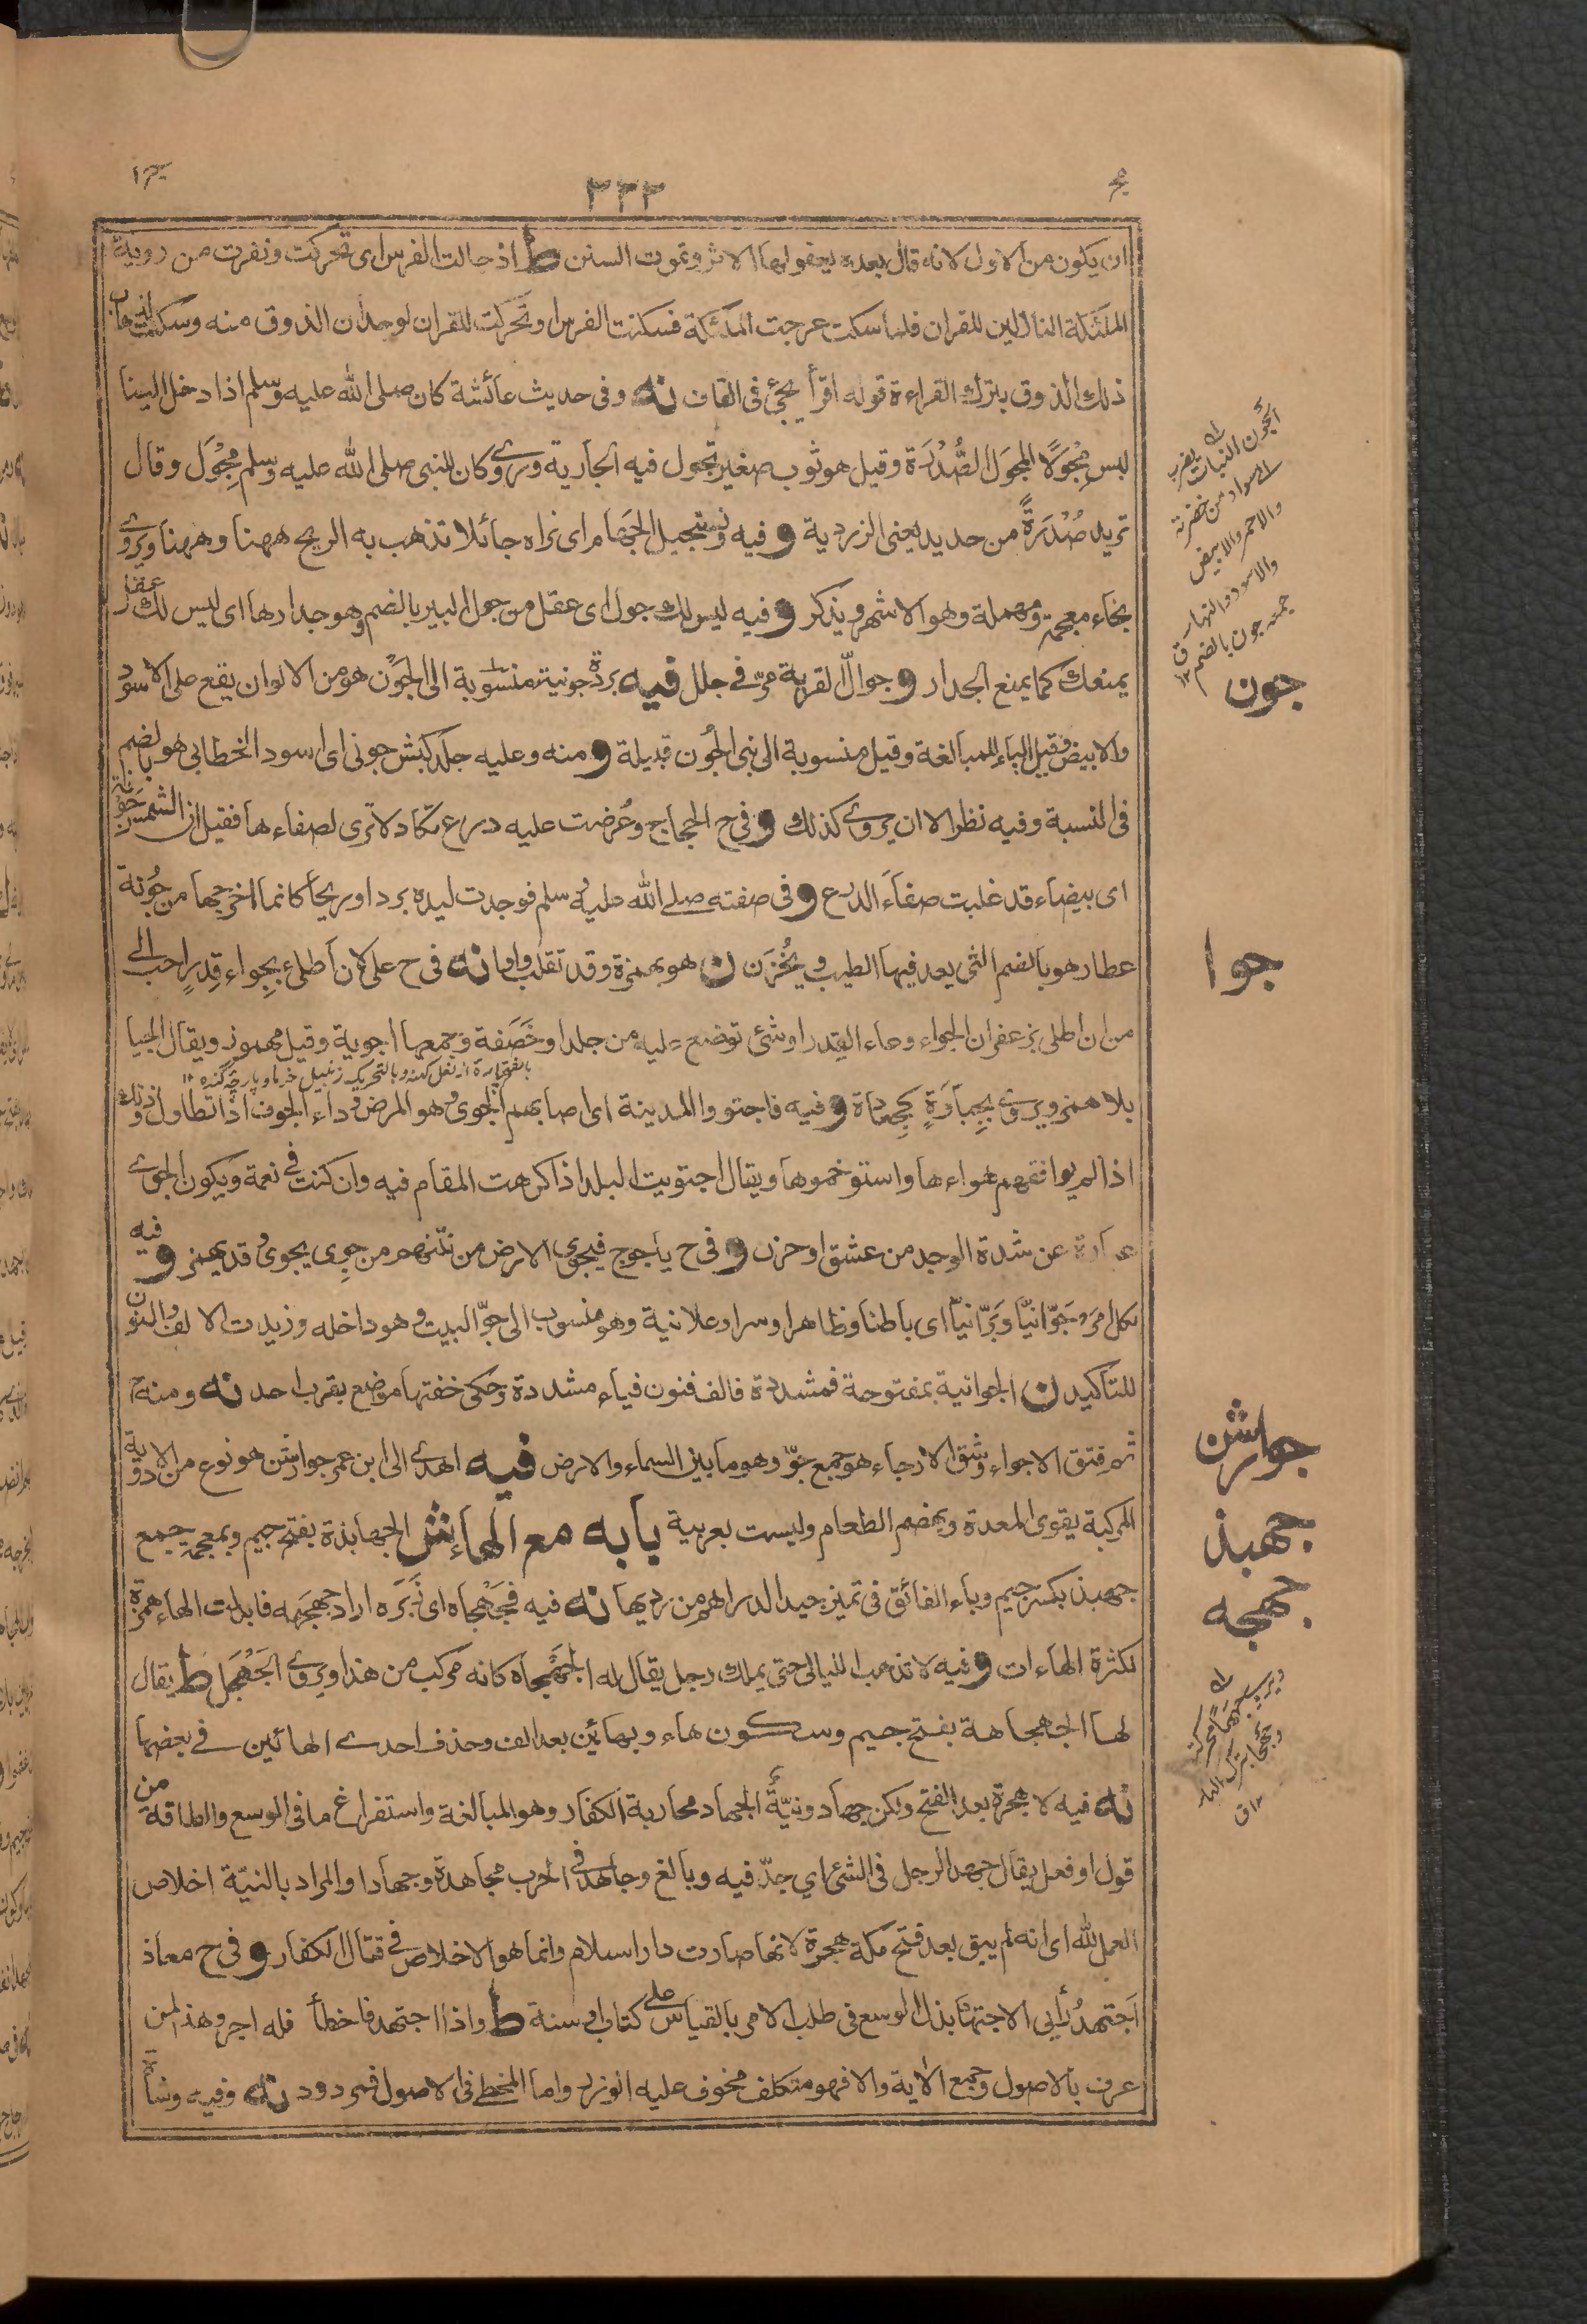 ٢٣٣
ان يكون من الاول لانه قال بعده يعفو لها الاثر وتموت السنن ط اذ جالت الفرس اى تحركت ونفرت من روية
الملئكة النازلين للقران فلما سكت عرجت الملئكة فسكنت الفرس او تحركت للقران لوجدان الذوق منه وسكنت لذهاب
ذلك الذوق بترك القراءة قوله اقرأ يجئ فى القاف نه وفى حديث عائشة كان صلى الله عليه وسلم اذا دخل الينا
لبس مِجْوَلًا المجوَل الصُّدْرَة وقيل هو ثوب صغير تجول فيه الجارية وروى وكان للنبى صلى الله عليه وسلم مِجْوَل وقال
تريد صُدْرَةً من حديد يعنى الزردية و فيه ونستجيل الجَهام اى نراه جائلا تذهب به الريح ههنا وههنا ويروى
بخاء معجمة ومهملة وهو الاشهر ويذكر و فيه ليس لك جول اى عقل من جول البير بالضم وهو جدارها اى ليس لك عقل
يمنعك كما يمنع الجدار و جوالّ القرية مرّ فى جلل فيه بردة جونية منسوبة الى الجَوْن هو من الالوان يقع على الاسود
والابيض وقيل الياء للمبالغة وقيل منسوبة الى بنى الجُون قبيلة و منه وعليه جلد كبش جونى اى اسود الخطابى هو بضم
فى النسبة وفيه نظر الا ان يروى كذلك و فى ح الحجاج وعُرضت عليه درع تكاد لا ترى لصفاءها فقيل ان الشمس جَوْنة
اى بيضاء قد غلبت صفاء الدرع و فى صفته صلى الله عليه وسلم فوجدت ليده بردا وريحا كانما اخرجها من جُونة
عطار هو بالضم التى يعد فيها الطيب ويُخْزَن ن هو بهمزة وقد تقلب واوا نه فى ح على لان اطلى بجِواء قِدرٍ احب الى
من ان اطلى بزعفران الجواء وعاء القدر او شئ توضع عليه من جلد او خَصَفة وجمعها اجوية وقيل مهموز ويقال الجيا
بلا همز ويروى بجِئاوَةٍ كجِعاوة و فيه فاجتووا المدينة اى اصابهم الجوى وهو المرض وداء الجوف اذا تطاول وذلك
اذا لم يوافقهم هواءها واستوخموها ويقال اجتويت البلد اذا كرهت المقام فيه وان كنت فى نعمة ويكون الجوى
عبارة عن شدة الوجد من عشق او حزن و فى ح ياجوج فيجوى الارض من نتنهم من جوِى يجوى وقد يهمز و فيه
لكل امرء جَوّانيّا وبَرّانيّا اى باطنا وظاهرا وسرا وعلانية وهو منسوب الى جوّ البيت وهو داخله وزيدت الالف والنون
للتاكيد ن الجوانية بمفتوحة فمشددة فالف فنون فياء مشددة وحكى خفتها موضع بقرب احد نه ومنه ح
ثم فتق الاجواء وشق الارجاء هو جمع جوّ وهو ما بين السماء والارض فيه اهدى الى ابن عمر جوارشن هو نوع من الادوية
المركبة يقوى المعدة ويهضم الطعام وليست بعربية بابه مع الهاء ش الجهابذة بفتح جيم وبمعجمة جمع
جهبذ بكسر جيم وباء الفائق فى تميز جيد الدراهم من رديها نه فيه فجَهْجأه اى زَبَره اراد جهجهه فابدلت الهاء همزة
لكثرة الهاءات و فيه لا تذهب الليالى حتى يملك رجل يقال له الجَهْجاه كانه مركب من هذا ويروى الجَهْجَل ط يقال
لها الجهجاهة بفتح جيم وسكون هاء وبهائين بعد الف وحذف احدى الهائين فى بعضها
نه فيه لا هجرة بعد الفتح ولكن جهاد ونيّةٌ الجهاد محاربة الكفار وهو المبالغة واستفراغ ما فى الوسع والطاقة من
قول او فعل يقال جهد الرجل فى الشئ اى جدّ فيه وبالغ وجاهد فى الحرب مجاهدة وجهادا والمراد بالنيّة اخلاص
العمل لله اى انه لم يبق بعد فتح مكة هجرة لانها صارت دار اسلام وانما هو الاخلاص فى قتال الكفار و فى ح معاذ
اَجتهدُ رأيى الاجتهاد بذل الوسع فى طلب الامر بالقياس على كتاب او سنة ط واذا اجتهد فاخطأ فله اجر وهذا لمن
عرف بالاصول وجمع الالية والا فهو متكلف مخوف عليه الوزر واما المخطى فى الاصول فمردود نه وفيه وشاة
الجون النبات يضرب
الى سواد من خضرته
والاحمر والابيض
والاسود والنهار
جمعه جون بالضم ١٢ ق
جون
جوا
جوارشن
جهبذ
جهجه